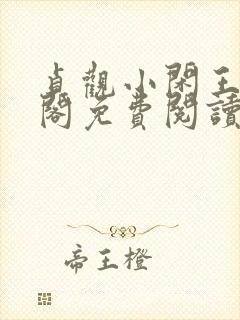 貞觀小閑王
閣免費閱讀
帝王橙